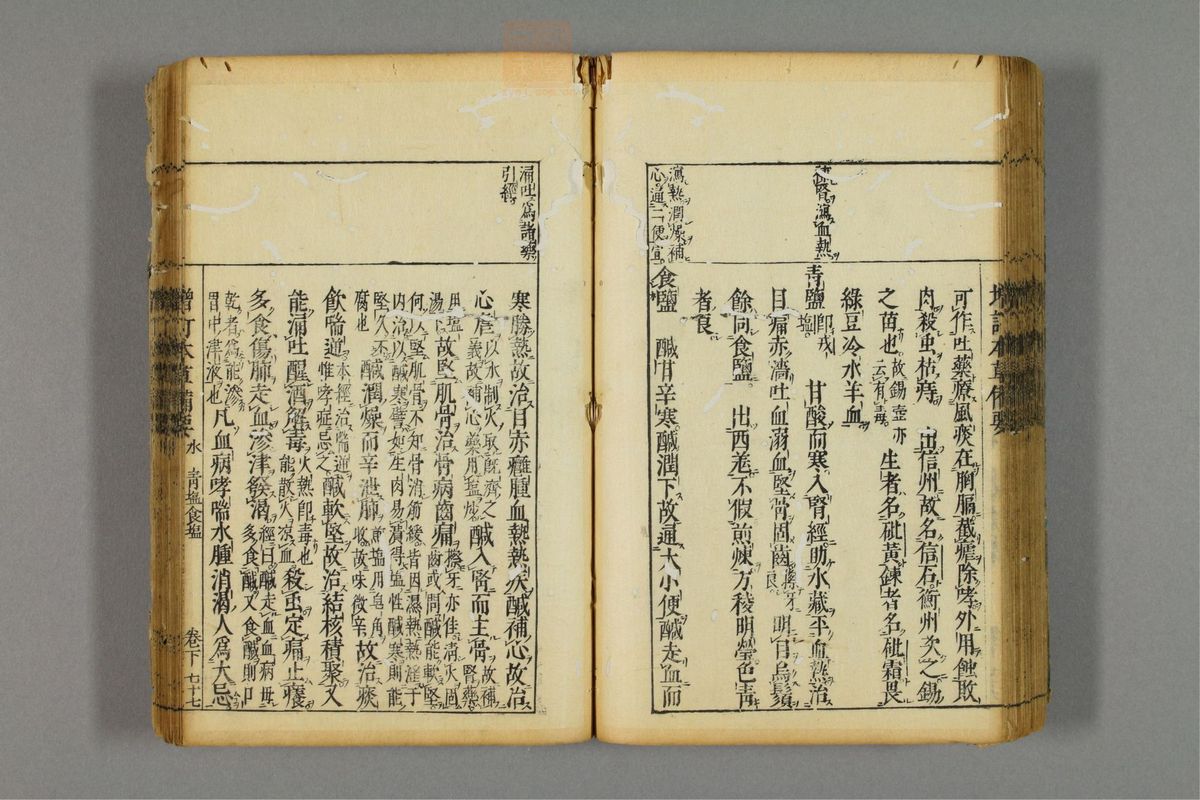 增訂本草備要
可作吐藥療風痰在胸膈截瘧除哮外用蝕敗
肉殺虫枯痔 出信州故名信石衡州次之錫
之苗也故錫壺亦云有毒 生者名砒黃鍊者名砒霜畏
綠豆冷水羊血
補腎瀉血熱
青鹽 即戎塩 甘鹹而寒入腎經助水藏平血熱治
目痛赤濇吐血溺血堅骨固齒擦牙良明目烏鬚
餘同食鹽 出西羗不假煎煉方稜明瑩色青
者良
瀉熱潤燥補心通二便宣
食鹽 鹹甘辛寒鹹潤下故通大小便鹹走血而
涌吐爲諸藥引經
寒勝熱故治目赤癰腫血熱熱疾鹹補心故治
心虛以水制火取旣濟之義故補心藥用塩炒鹹入腎而主骨故補腎藥
用塩湯故堅肌骨治骨病齒痛擦牙亦佳清火固齒或問鹹能軟堅
何以堅肌骨不知骨消筋緩皆因濕熱熱淫于
内治以鹹寒譬如生肉易潰得塩性鹹寒則能
堅久不腐也鹹潤燥而辛泄肺煎塩用皂角收故味微辛故治痰
飲喘逆本經治喘逆惟哮症忌之鹹軟堅故治結核積聚又
能涌吐醒酒解毒火熱即毒也能散火凉血殺虫定痛止癢
多食傷肺走血滲津發渴經曰鹹走血血病毋多食鹹又食鹹則口
乾者爲能滲胃中津液也凡血病哮喘水腫消渴人爲大忌
增訂本草備要 水 青塩食塩 卷下 七十七